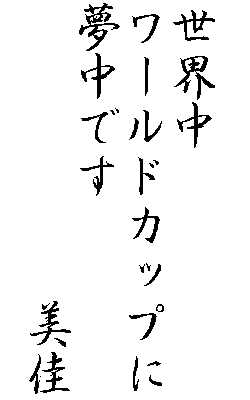 世界中
ワールドカップに
夢中です
美佳